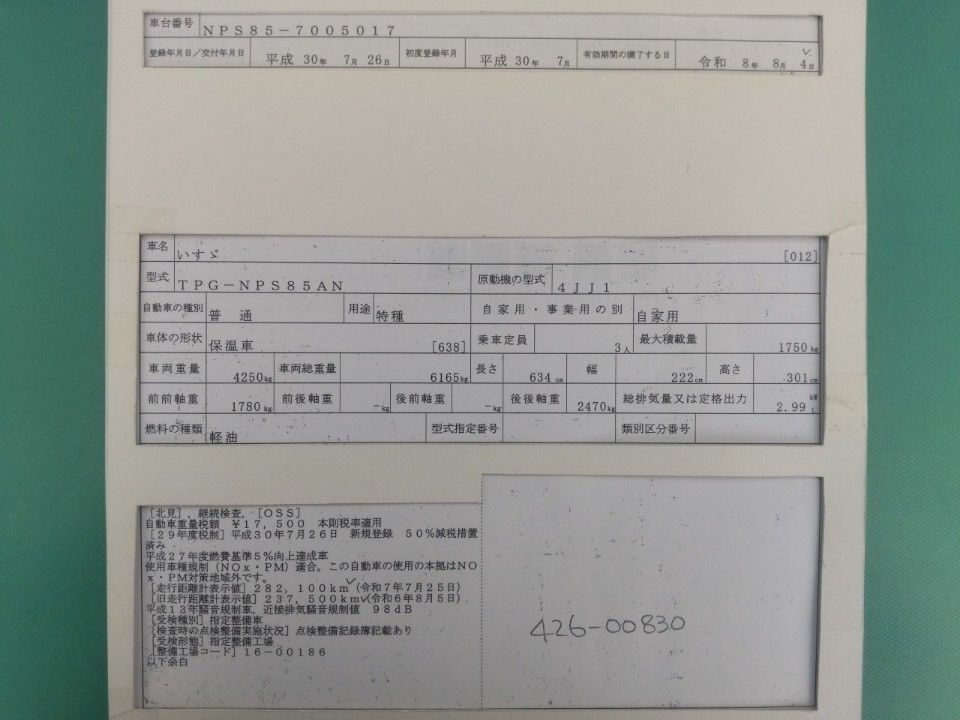 車台番号 NPS85-7005017
登録年月日/交付年月日 平成 30年 7月 26日 初度登録年月 平成 30年 7月 有効期間の満了する日 令和 8年 8月 4日
車名 いすゞ [012]
型式 TPG-NPS85AN 原動機の型式 4JJ1
自動車の種別 普通 用途 特種 自家用・事業用の別 自家用
車体の形状 保温車 [638] 乗車定員 3人 最大積載量 1750kg
車両重量 4250kg 車両総重量 6165kg 長さ 634cm 幅 222cm 高さ 301cm
前前軸重 1780kg 前後軸重 -kg 後前軸重 -kg 後後軸重 2470kg 総排気量又は定格出力 2.99 kW L
燃料の種類 軽油 型式指定番号 類別区分番号
[北見],継続検査,[OSS]
自動車重量税額 ¥17,500 本則税率適用
[29年度税制]平成30年7月26日 新規登録 50%減税措置
済み
平成27年度燃費基準5%向上達成車
使用車種規制(NOx・PM)適合。この自動車の使用の本拠はNO
x・PM対策地域外です。
[走行距離計表示値]282,100km(令和7年7月25日)
[旧走行距離計表示値]237,500km(令和6年8月5日)
平成13年騒音規制車,近接排気騒音規制値 98dB
[受検種別]指定整備車
[検査時の点検整備実施状況]点検整備記録簿記載あり
[受検形態]指定整備工場
[整備工場コード]16-00186
以下余白
426-00830